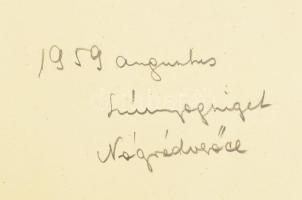 1959 augusztus
Szúnyogsziget
Nógrádverőce